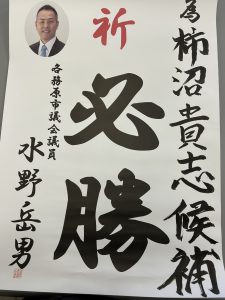 為柿沼貴志候補
祈
必勝
各務原市議会議員
水野岳男